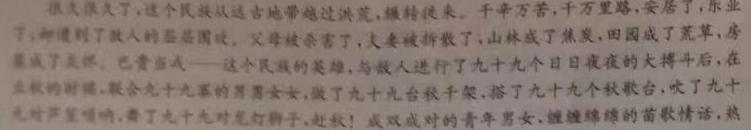 很久很久了,这个民族从远古地带越过洪荒,辗转徙来。千辛万苦,千万里路,安居了,乐业
了,却遭到了敌人的层层围攻。父母被杀害了,夫妻被拆散了,山林成了焦炭,田园成了荒草,房
屋成了灰烬。巴贵当戎——这个民族的英雄,与敌人进行了九十九个日日夜夜的大搏斗后,在
立秋的时候,联合九十九寨的男男女女,做了九十九台秋千架,搭了九十九个秋歌台,吹了九十
九对芦笙唢呐,舞了九十九对龙灯狮子,赶秋!成双成对的青年男女,缠缠绵绵的苗歌情话,热